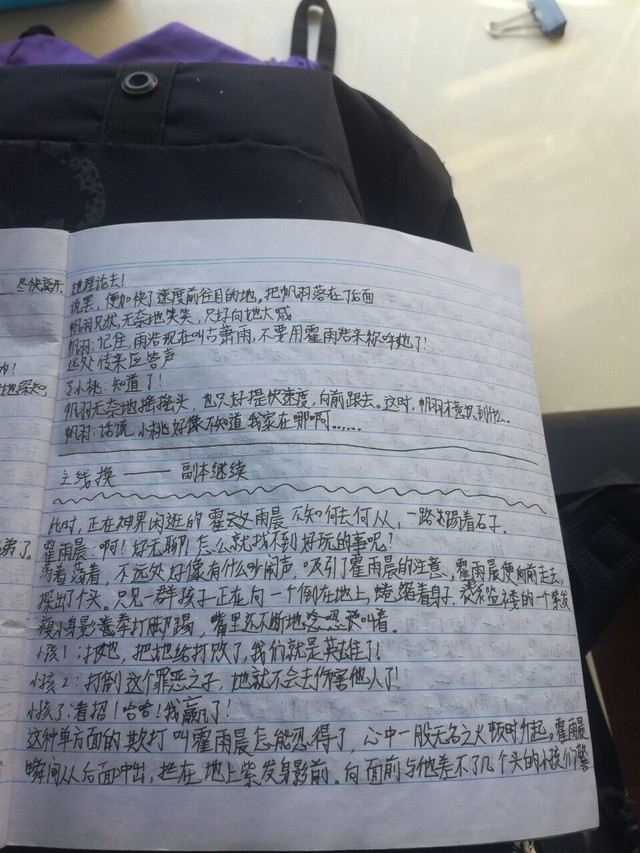 ……尽快离开
地理论去！
说罢，便加快了速度前往目的地。把帆羽落在了后面
帆羽见状，无奈地笑笑，只好向她大喊
帆羽：记住，雨浩现在叫古萧雨，不要用霍雨浩来称呼她了！
远处传来应答声
小桃：知道了！
帆羽无奈地摇摇头，也只好提快速度，向前跟去。这时，帆羽才意识到什么。
帆羽：话说，小桃好像不知道我家在哪啊……
主线换——副本继续
此时，正在神界闲逛的霍雨晨不知何去何从，一路上踢着石子。
霍雨晨：啊！好无聊！怎么就找不到好玩的事呢？
荡着荡着，不远处好像有什么吵闹声，吸引了霍雨晨的注意，霍雨晨便向前走去，
探出了个头。只见一群孩子正在向一个倒在地上，蜷缩着身子，的一个紫发
瘦小身影拳打脚踢，嘴里还不断地叫着。
小孩1：打她，把她给打败了，我们就是英雄了！
小孩2：打倒这个罪恶之子，她就不会去伤害他人了！
小孩3：看招！哈哈！我赢了！
这种单方面的欺打叫霍雨晨怎能忍得了，心中一股无名之火顿时升起，霍雨晨
瞬间从后面冲出，拦在地上紫发身影前。向面前与他差不了几个头的小孩们